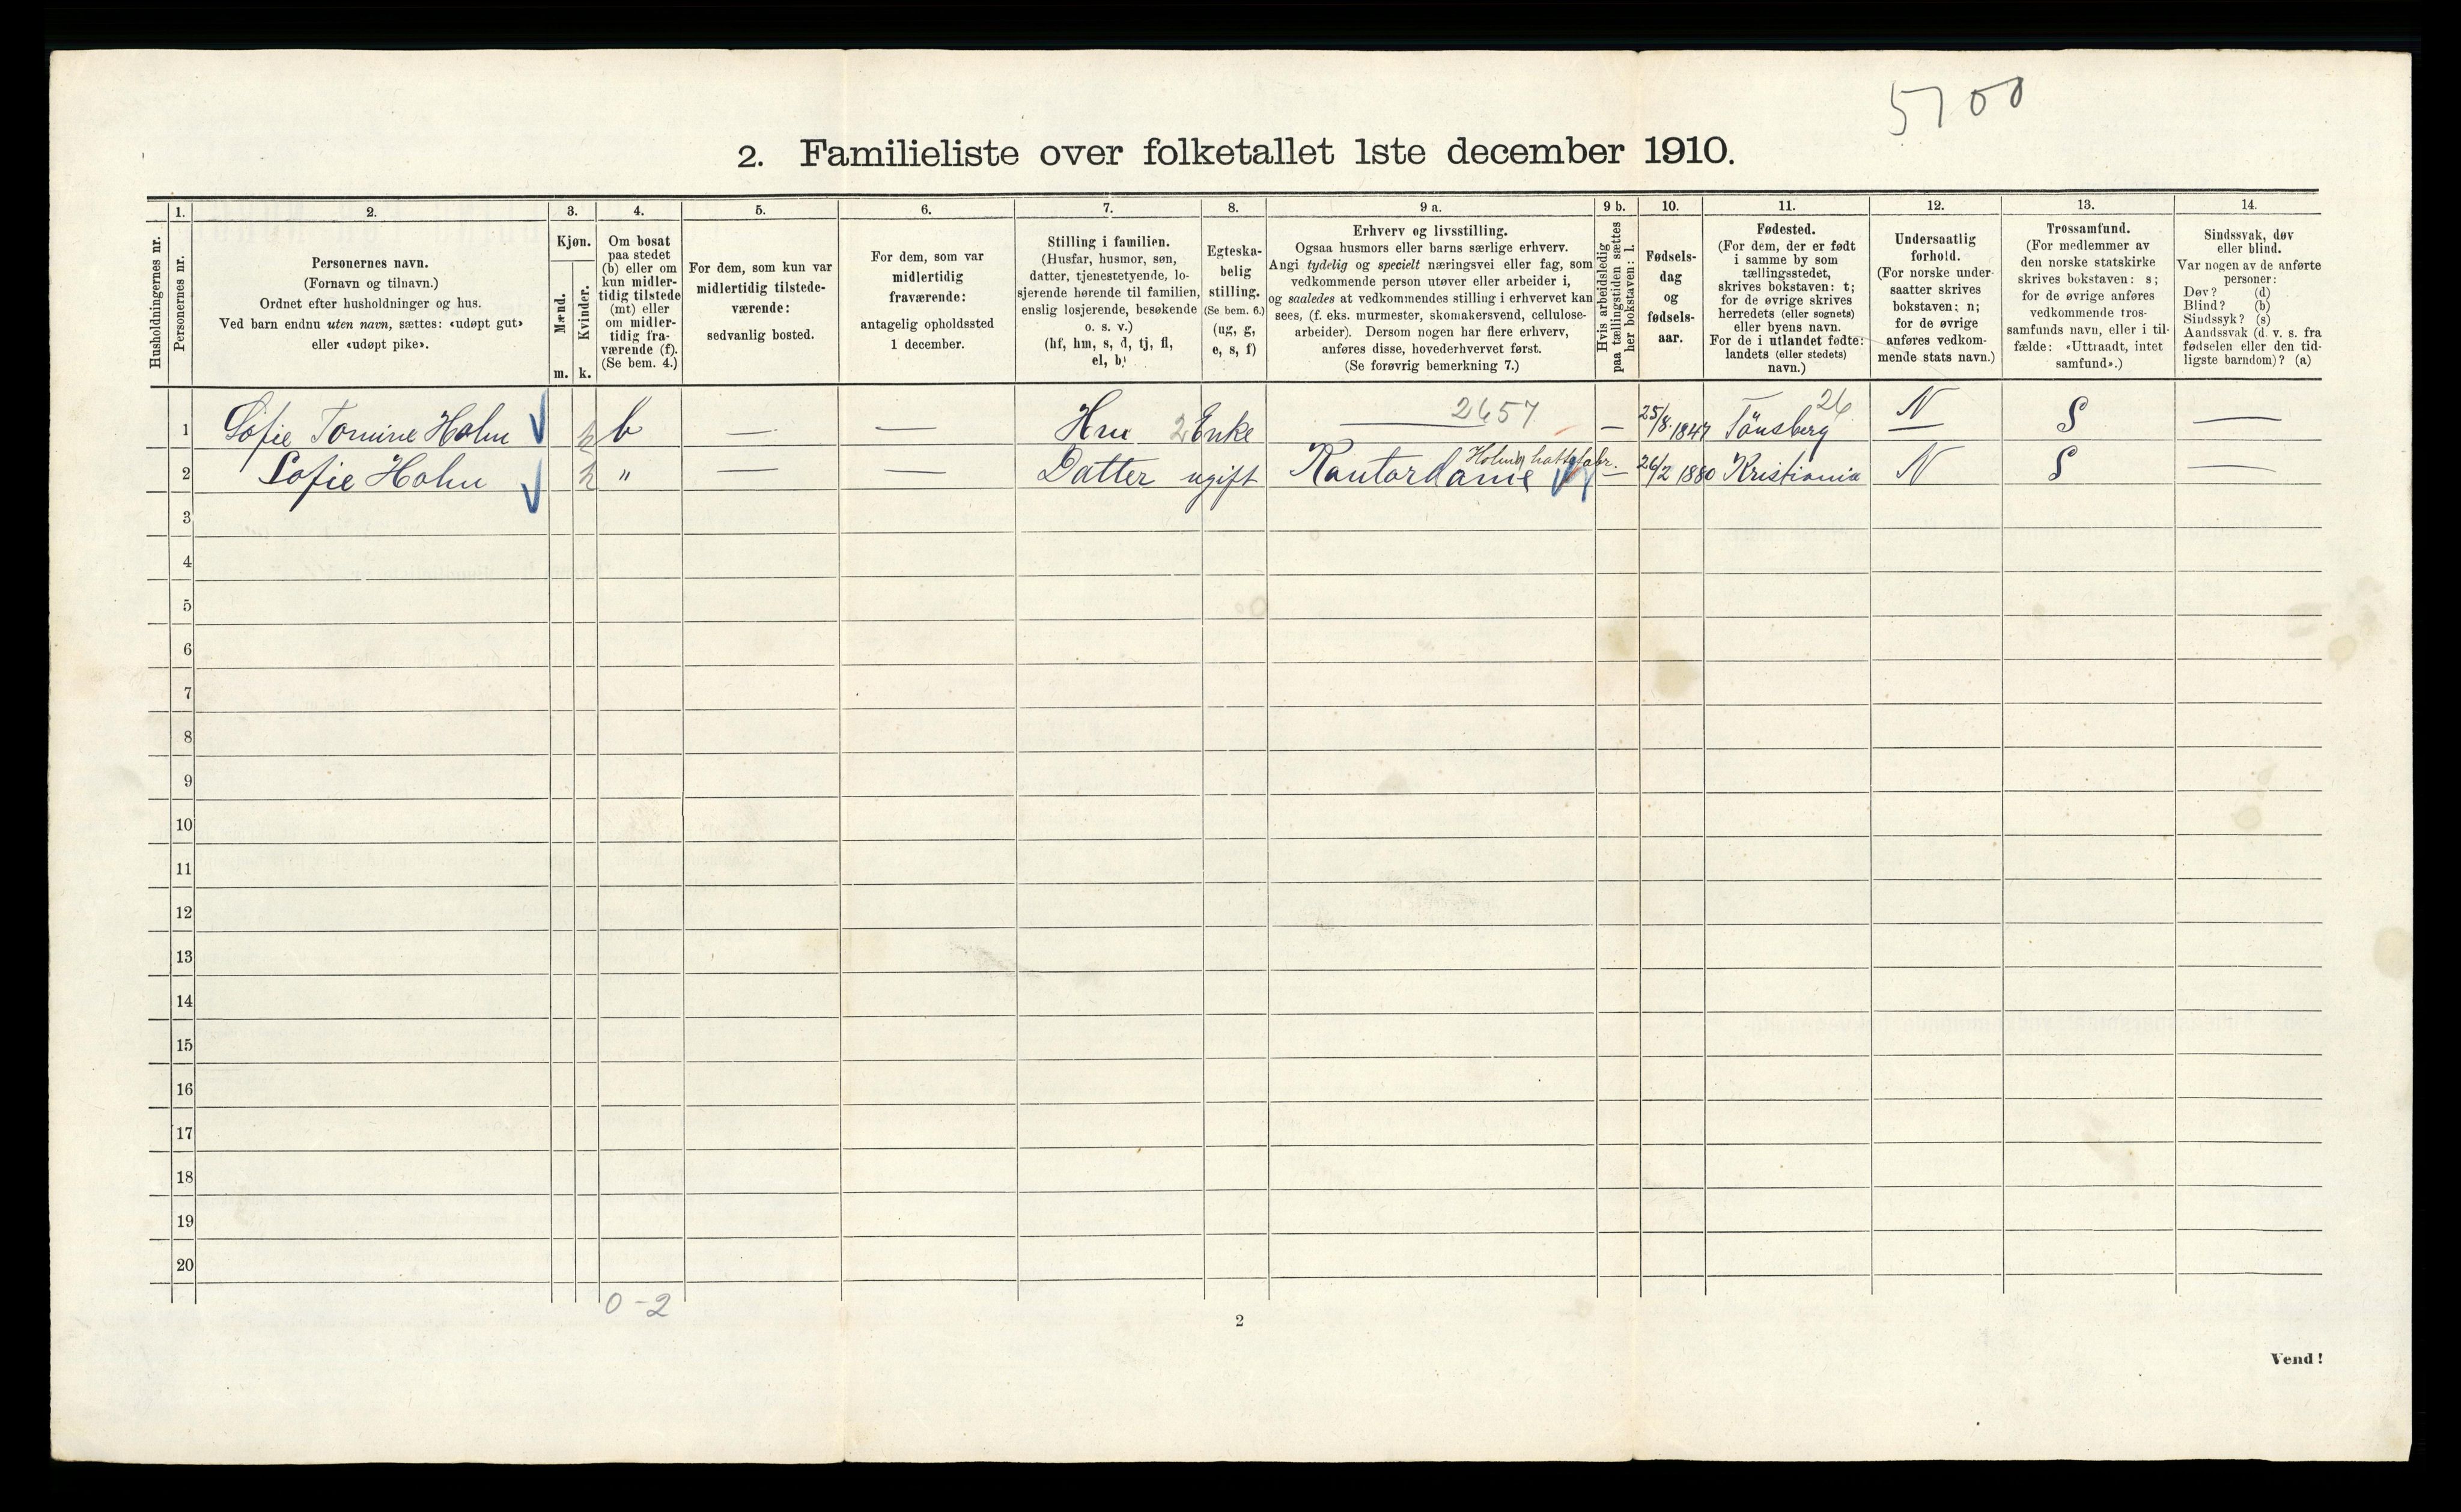 5700
2. Familieliste over folketallet 1ste december 1910.
1. 2. 3. 4. 5. 6. 7. 8. 9 a. 9 b. 10. 11. 12. 13. 14.
Husholdningernes nr.
Personernes nr.
Personernes navn.
(Fornavn og tilnavn.)
Ordnet efter husholdninger og hus.
Ved barn endnu uten navn, sættes: «udøpt gut»
eller «udøpt pike».
Kjøn.
Mænd.
Kvinder.
m. k.
Om bosat
paa stedet
(b) eller om
kun midler-
tidig tilstede
(mt) eller
om midler-
tidig fra-
værende (f).
(Se bem. 4.)
For dem, som kun var
midlertidig tilstede-
værende:
sedvanlig bosted.
For dem, som var
midlertidig
fraværende:
antagelig opholdssted
1 december.
Stilling i familien.
(Husfar, husmor, søn,
datter, tjenestetyende, lo-
sjerende hørende til familien,
enslig losjerende, besøkende
o. s. v.)
(hf, hm, s, d, tj, fl,
el, b)
Egteska-
belig
stilling.
(Se bem. 6.)
(ug, g,
e, s, f)
Erhverv og livsstilling.
Ogsaa husmors eller barns særlige erhverv.
Angi tydelig og specielt næringsvei eller fag, som
vedkommende person utøver eller arbeider i,
og saaledes at vedkommendes stilling i erhvervet kan
sees, (f. eks. murmester, skomakersvend, cellulose-
arbeider). Dersom nogen har flere erhverv,
anføres disse, hovederhvervet først.
(Se forøvrig bemerkning 7.)
Hvis arbeidsledig
paa tællingstiden sættes
her bokstaven: l.
Fødsels-
dag
og
fødsels-
aar.
Fødested.
(For dem, der er født
i samme by som
tællingsstedet,
skrives bokstaven: t;
for de øvrige skrives
herredets (eller sognets)
eller byens navn.
For de i utlandet fødte:
landets (eller stedets)
navn.)
Undersaatlig
forhold.
(For norske under-
saatter skrives
bokstaven: n;
for de øvrige
anføres vedkom-
mende stats navn.)
Trossamfund.
(For medlemmer av
den norske statskirke
skrives bokstaven: s;
for de øvrige anføres
vedkommende tros-
samfunds navn, eller i til-
fælde: «Uttraadt, intet
samfund».)
Sindssvak, døv
eller blind.
Var nogen av de anførte
personer:
Døv? (d)
Blind? (b)
Sindssyk? (s)
Aandssvak (d. v. s. fra
fødselen eller den tid-
ligste barndom)? (a)
1 Sofie Tomine Holm k b — — Hm 2 Enke 2657 — 25/8 1847 Tönsberg 26 N S —
2 Sofie Holm k " — — Datter ugift Kontordame Holms hattefabr. — 26/2 1880 Kristiania N S —
3
4
5
6
7
8
9
10
11
12
13
14
15
16
17
18
19
20
0-2
2
Vend!